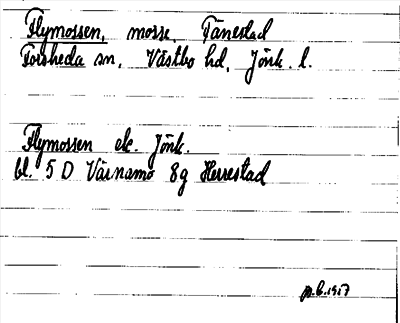 Flymossen, mosse, Tånestad
Forsheda sn, Västbo hd, Jönk. l.
Flymossen ek. Jönk.
bl. 5 D Värnamo 8g Herrestad
p.b. 1957